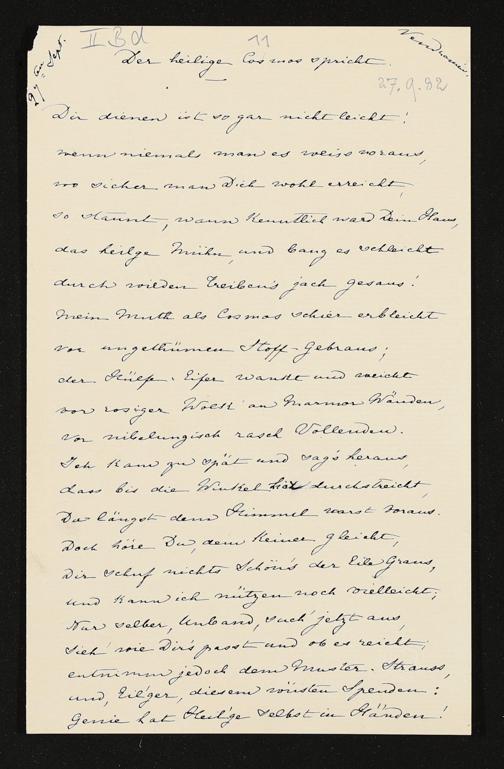 27ten Sept.
II B d
11
Vendramin.
27.9.82
Der heilige Cosmos spricht.
Dir dienen ist so gar nicht leicht!
wenn niemals man es weiss voraus,
wo sicher man Dich wohl erreicht,
so staunt, wann Kenntlich ward Dein Haus,
das heilge Mühn, und bang es schleicht
durch wilden Treiben's jach gesaus!
Mein Muth als Cosmos schier erbleicht
vor ungethümen Stoff-Gebraus;
der Hülfs-Eifer wankt und weicht
vor rosiger Wolk' an Marmor Wänden,
vor nibelungisch rasch Vollenden.
Ich kam zu spät und sag's heraus,
dass bis die Winkel durchstreicht,
Du längst dem Himmel warst voraus.
Doch höre Du, dem Keiner gleicht,
Dir schuf nichts Schön's der Eile Graus,
und kann ich nützen noch vielleicht;
Nur selber, Unband, such' jetzt aus,
Sieh' wie Dir's passt und ob es reicht;
entnimm jedoch dem Muster-Strauss,
und, Eil'ger, diesem wüsten Spenden:
Genie hat Heil'ge selbst in Händen!